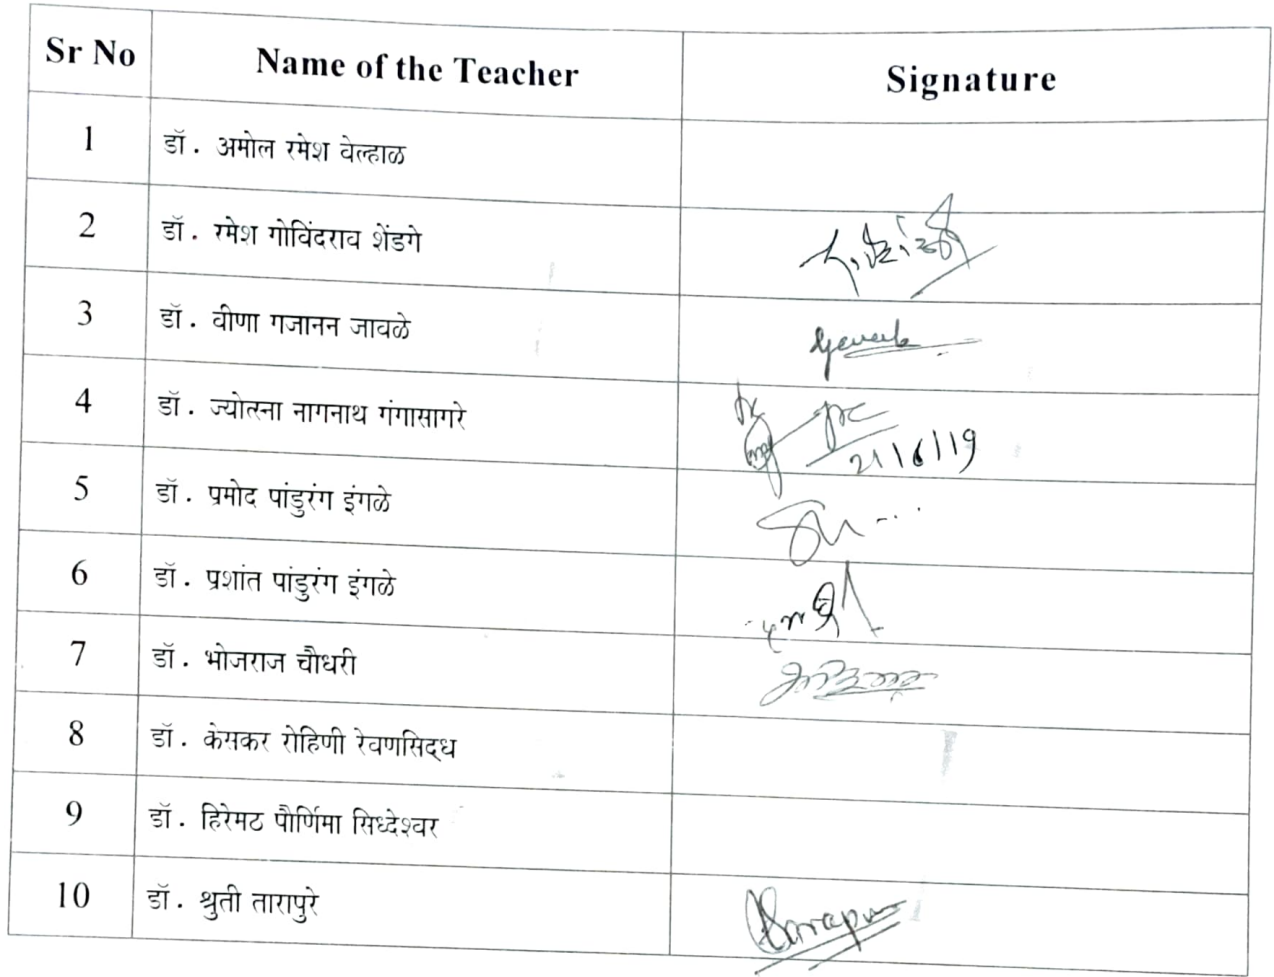 Sr No Name of the Teacher Signature
1 डॉ. अमोल रमेश वेल्हाळ
2 डॉ. रमेश गोविंदराव शेंडगे
3 डॉ. वीणा गजानन जावळे
4 डॉ. ज्योत्स्ना नागनाथ गंगासागरे
21/6/19
5 डॉ. प्रमोद पांडुरंग इंगळे
6 डॉ. प्रशांत पांडुरंग इंगळे
7 डॉ. भोजराज चौधरी
8 डॉ. केसकर रोहिणी रेवणसिद्ध
9 डॉ. हिरेमठ पौर्णिमा सिध्देश्वर
10 डॉ. श्रुती तारापुरे